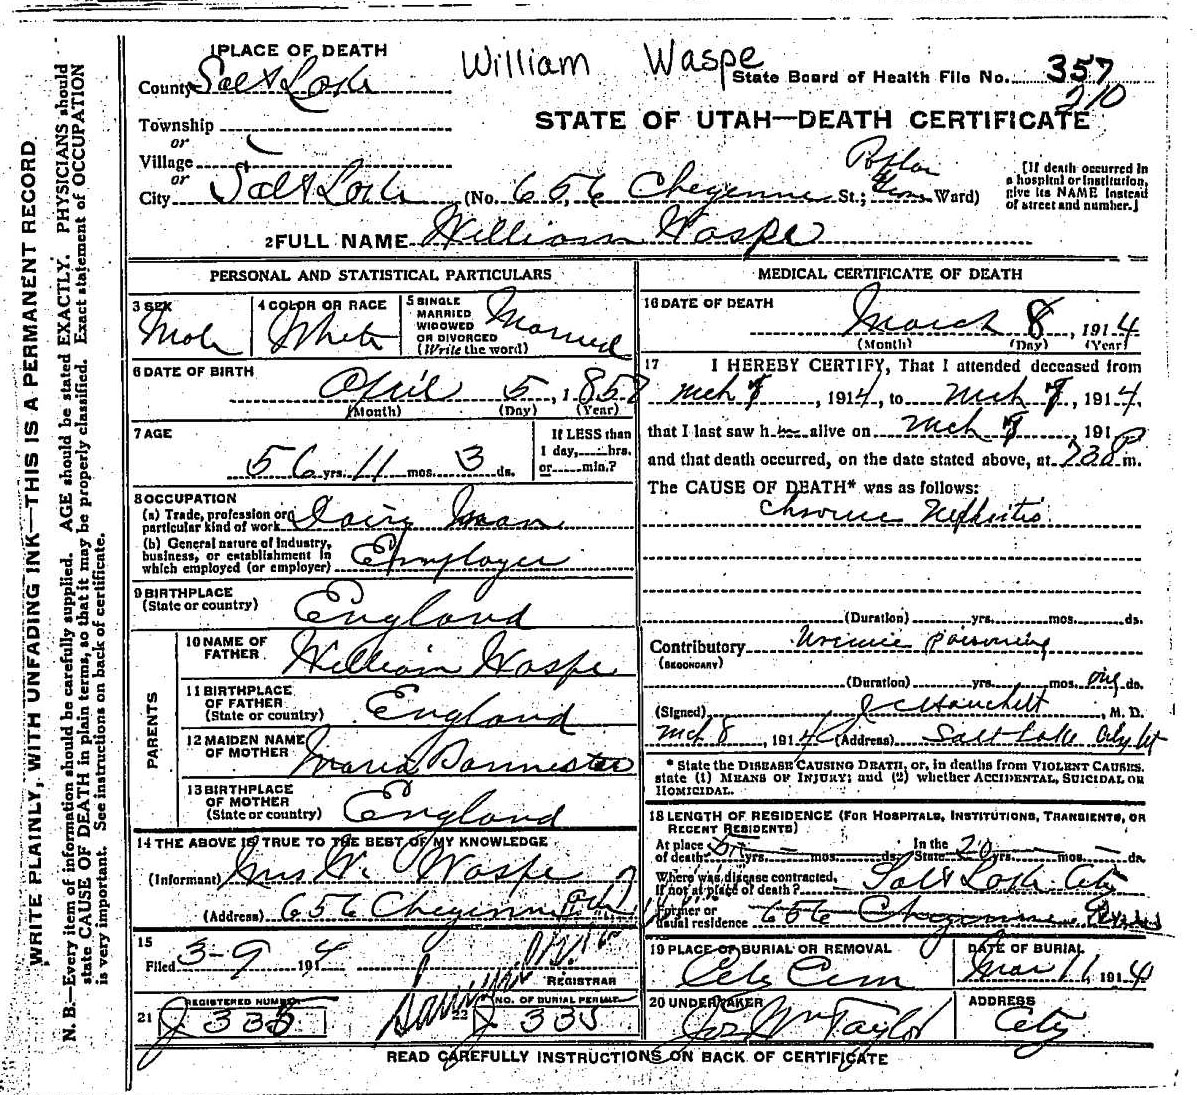 William Waspe
1 PLACE OF DEATH
County Salt Lake
State Board of Health File No. 357
210
Township
or
Village
or
City Salt Lake
STATE OF UTAH—DEATH CERTIFICATE
(No. 656 Cheyenne St.; Ward)
[If death occurred in
a hospital or institution,
give its NAME instead
of street and number.]
2 FULL NAME William Waspe
PERSONAL AND STATISTICAL PARTICULARS
3 SEX
Male
4 COLOR OR RACE
White
5 SINGLE
MARRIED
WIDOWED
OR DIVORCED
(Write the word)
Married
6 DATE OF BIRTH
April 5, 1857
(Month) (Day) (Year)
7 AGE
56 yrs. 11 mos. 3 ds.
If LESS than
1 day, hrs.
or min.?
8 OCCUPATION
(a) Trade, profession or
particular kind of work Dairy Man
(b) General nature of industry,
business, or establishment in
which employed (or employer) Employer
9 BIRTHPLACE
(State or country) England
PARENTS
10 NAME OF
FATHER William Waspe
11 BIRTHPLACE
OF FATHER
(State or country) England
12 MAIDEN NAME
OF MOTHER Maria Bannester
13 BIRTHPLACE
OF MOTHER
(State or country) England
14 THE ABOVE IS TRUE TO THE BEST OF MY KNOWLEDGE
(Informant) Mrs W. Waspe
(Address) 656 Cheyenne
15
Filed 3-9 1914
REGISTRAR
21
REGISTERED NUMBER
J 335
22
NO. OF BURIAL PERMIT
J 335
MEDICAL CERTIFICATE OF DEATH
16 DATE OF DEATH
March 8, 1914
(Month) (Day) (Year)
17 I HEREBY CERTIFY, That I attended deceased from
Mch , 1914, to Mch , 1914,
that I last saw him alive on Mch , 191
and that death occurred, on the date stated above, at 730 P m.
The CAUSE OF DEATH* was as follows:
Chronic Nephritis
(Duration) yrs. mos. ds.
Contributory Uremic poisoning
(SECONDARY)
(Duration) yrs. mos. one ds.
(Signed) , M. D.
Mch 8, 1914 (Address) Salt Lake City Ut
* State the DISEASE CAUSING DEATH, or, in deaths from VIOLENT CAUSES,
state (1) MEANS OF INJURY; and (2) whether ACCIDENTAL, SUICIDAL OR
HOMICIDAL.
18 LENGTH OF RESIDENCE (FOR HOSPITALS, INSTITUTIONS, TRANSIENTS, OR
RECENT RESIDENTS)
At place
of death yrs. mos. ds. In the State 20 yrs. mos. ds.
Where was disease contracted,
if not at place of death? Salt Lake City
Former or
usual residence 656 Cheyenne
19 PLACE OF BURIAL OR REMOVAL
City Cem
DATE OF BURIAL
Mar 11, 1914
20 UNDERTAKER
Jos Wm Taylor
ADDRESS
City
READ CAREFULLY INSTRUCTIONS ON BACK OF CERTIFICATE
WRITE PLAINLY, WITH UNFADING INK—THIS IS A PERMANENT RECORD
N. B.—Every item of information should be carefully supplied. AGE should be stated EXACTLY. PHYSICIANS should
state CAUSE OF DEATH in plain terms, so that it may be properly classified. Exact statement of OCCUPATION
is very important. See instructions on back of certificate.